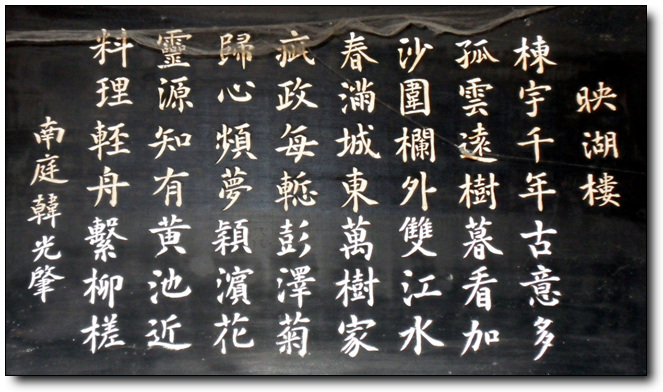 映湖樓
棟宇千年古意多
孤雲遠樹暮看加
沙圍欄外雙江水
春滿城東萬樹家
疵政每慙彭澤菊
歸心頻夢穎濱花
靈源知有黃池近
料理輕舟繫柳槎
南庭韓光肇